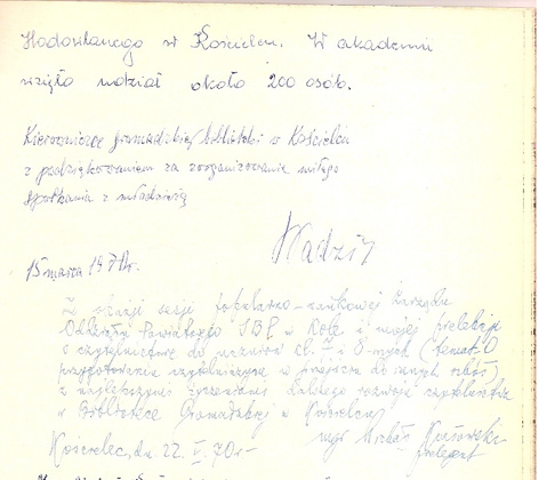 Hodowlanego w Kościelcu. W akademii
wzięło udział około 200 osób.
Kierowniczce gromadzkiej biblioteki w Kościelcu
z podziękowaniem za zorganizowanie miłego
spotkania z młodzieżą
15 marca
Z okazji sesji popularno-naukowej Zarządu
Oddziału Powiatowego SBP w Kole i mojej prelekcji
o czytelnictwie do uczniów kl. 7 i 8-mych (temat: O
przygotowaniu czytelniczym w do innych szkół)
z najlepszymi życzeniami dalszego rozwoju czytelnictwa
w Bibliotece Gromadzkiej w Kościelcu
Kościelec, dn. 22. V. 70 r. mgr
prelegent